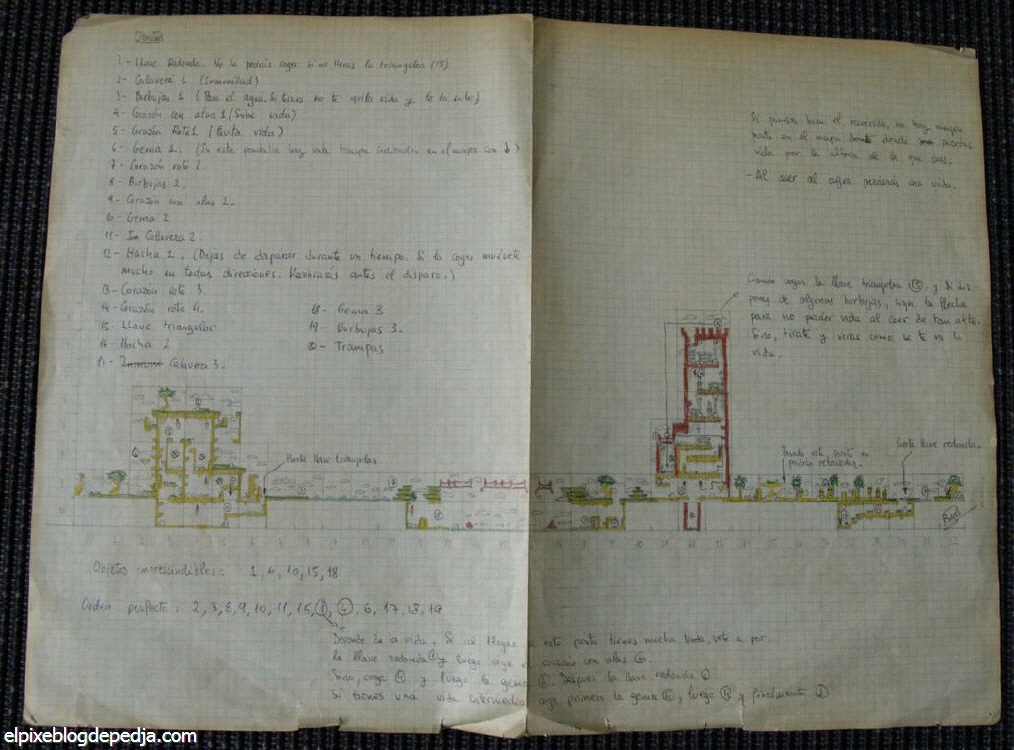 Objetos
1 - Llave Redonda. No la podrás coger si no llevas la triangular (15)
2 - Calavera 1 (Inmunidad)
3 - Burbujas 1 (Para el agua. Si tienes no te quita vida y te la sube)
4 - Corazón con alas 1 (Sume vida)
5 - Corazón Roto 1 (Quita vida)
6 - Gema 1. (En esta pantalla hay una trampa indicada en el mapa con ↓)
7 - Corazón roto 2.
8 - Burbujas 2.
9 - Corazón con alas 2.
10 - Gema 2
11 - Calavera 2.
12 - Hacha 1. (Dejas de disparar durante un tiempo. Si la coges muévete
mucho en todas direcciones. Recobrarás antes el disparo.)
13 - Corazón roto 3.
14 - Corazón roto 4.
15 - Llave triangular
16 - Hacha 2
17 - Calavera 3.
18 - Gema 3
19 - Burbujas 3.
20 - Trampas
Si piensas bien el recorrido, no hay ningún
punto en el mapa donde pierdas
vida por la altura de la que caes.
- Al caer al agua perderás una vida.
Cuando cojas la llave triangular (15), y si dis-
pones de algunas burbujas, sigue la flecha
para no perder vida al caer de tan alto.
Sino, tírate y verás como se te va la
vida.
Puerta llave triangular
Pasado este punto no
podrás retroceder.
Puerta llave redonda.
Objetos imprescindibles: 1, 6, 10, 15, 18
Orden perfecto: 2, 3, 8, 9, 10, 11, 15, 1, 4, 6, 17, 18, 19
Depende de la vida. Si al llegar a este punto tienes mucha vida, vete a por
la llave redonda 1 y luego coge el corazón con alas 4.
Sino, coge 4 y luego la gema 6. Después la llave redonda 1
Si tienes una vida intermedia coge primero la gema 6, luego 4 y finalmente 1
elpixeblogdepedja.com